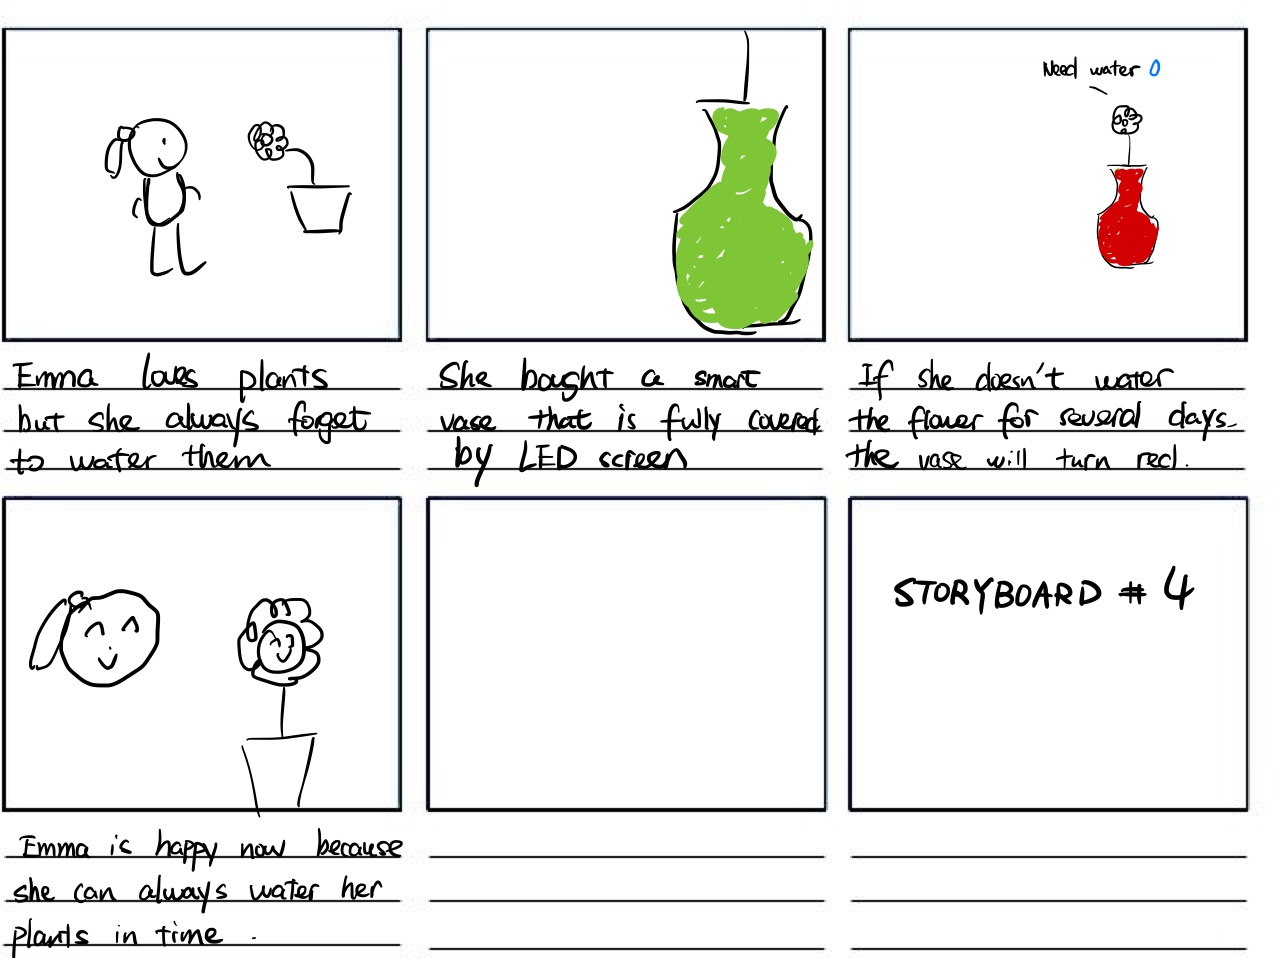 Need water
Emma loves plants
but she always forget
to water them
She bought a smart
vase that is fully covered
by LED screen
If she doesn't water
the flower for several days
the vase will turn red.
STORYBOARD # 4
Emma is happy now because
she can always water her
plants in time .